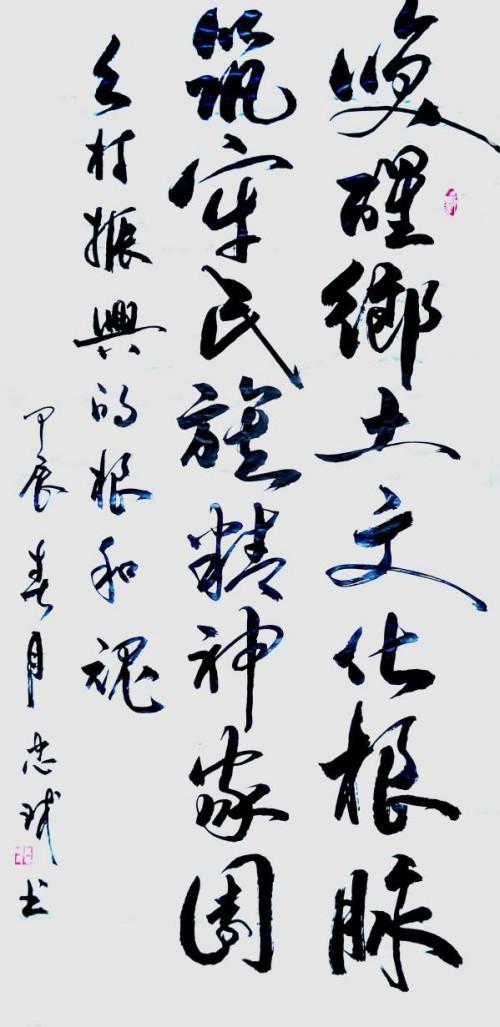 唤醒鄉土文化根脉
筑牢民族精神家园
乡村振興的根和魂
甲辰春月忠斌书